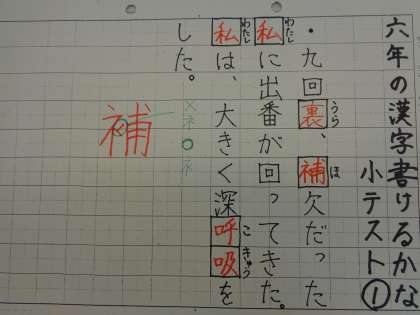 六年の漢字書けるかな
小テスト①
・九回裏、補欠だった
うら
ほ
私に出番が回ってきた。
わたし
私は、大きく深呼吸を
わたし
こきゅう
した。
×ネ○ネ
補